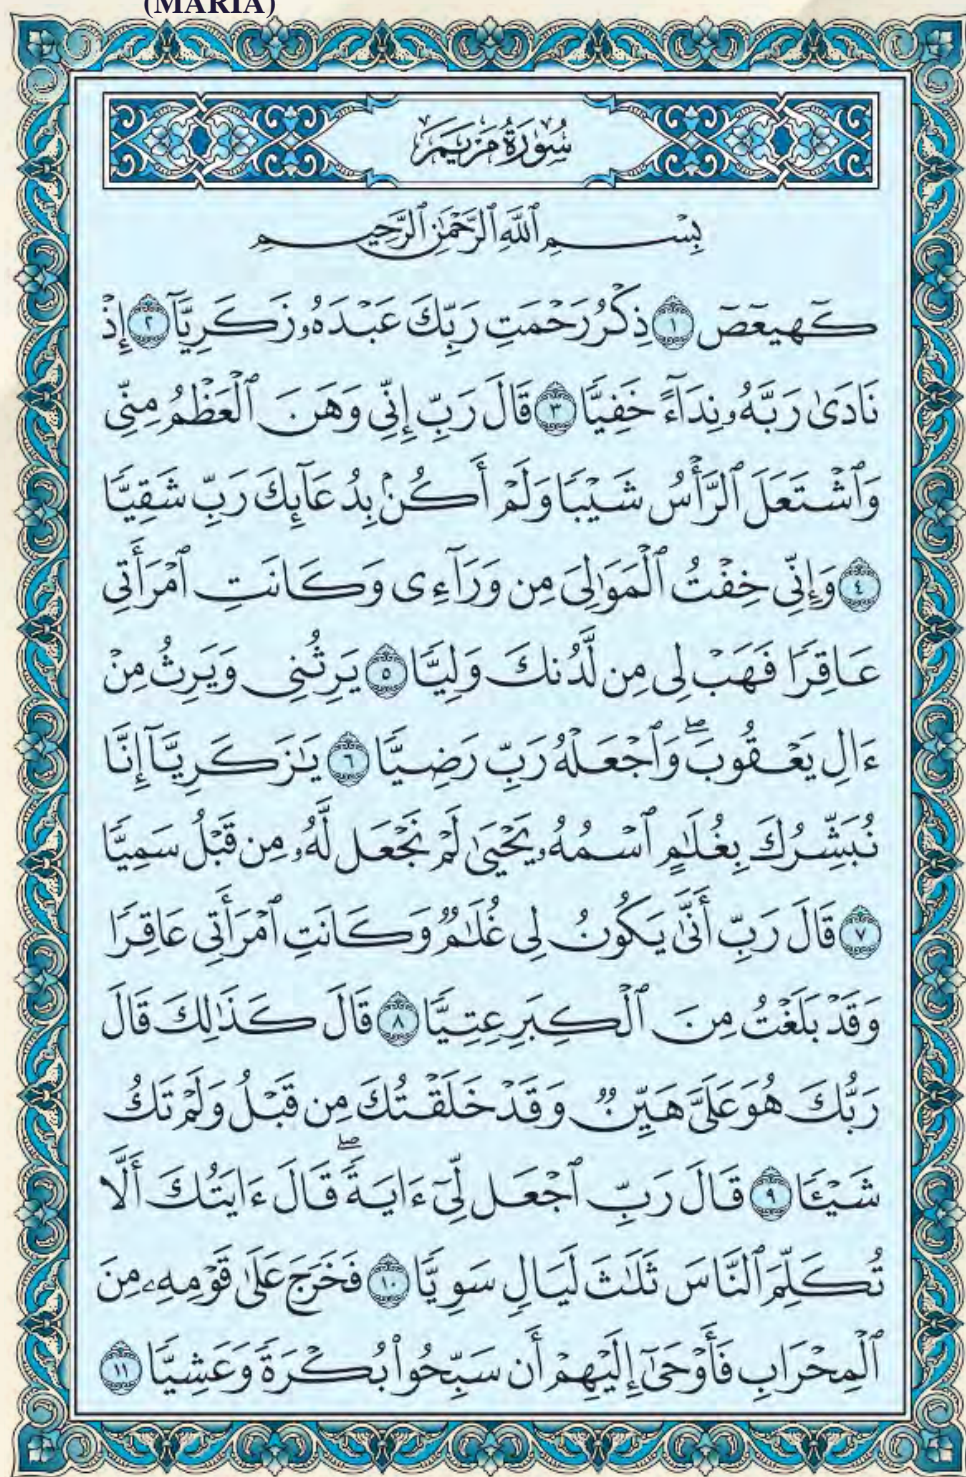 (MARIA)
سُورَةُ مَرْيَمَ
بِسْمِ ٱللَّهِ ٱلرَّحْمَٰنِ ٱلرَّحِيمِ
كٓهيعٓصٓ ١ ذِكْرُ رَحْمَتِ رَبِّكَ عَبْدَهُۥ زَكَرِيَّآ ٢ إِذْ
نَادَىٰ رَبَّهُۥ نِدَآءً خَفِيًّا ٣ قَالَ رَبِّ إِنِّى وَهَنَ ٱلْعَظْمُ مِنِّى
وَٱشْتَعَلَ ٱلرَّأْسُ شَيْبًا وَلَمْ أَكُنۢ بِدُعَآئِكَ رَبِّ شَقِيًّا
٤ وَإِنِّى خِفْتُ ٱلْمَوَٰلِىَ مِن وَرَآءِى وَكَانَتِ ٱمْرَأَتِى
عَاقِرًا فَهَبْ لِى مِن لَّدُنكَ وَلِيًّا ٥ يَرِثُنِى وَيَرِثُ مِنْ
ءَالِ يَعْقُوبَ ۖ وَٱجْعَلْهُ رَبِّ رَضِيًّا ٦ يَٰزَكَرِيَّآ إِنَّا
نُبَشِّرُكَ بِغُلَٰمٍ ٱسْمُهُۥ يَحْيَىٰ لَمْ نَجْعَل لَّهُۥ مِن قَبْلُ سَمِيًّا
٧ قَالَ رَبِّ أَنَّىٰ يَكُونُ لِى غُلَٰمٌ وَكَانَتِ ٱمْرَأَتِى عَاقِرًا
وَقَدْ بَلَغْتُ مِنَ ٱلْكِبَرِ عِتِيًّا ٨ قَالَ كَذَٰلِكَ قَالَ
رَبُّكَ هُوَ عَلَىَّ هَيِّنٌ وَقَدْ خَلَقْتُكَ مِن قَبْلُ وَلَمْ تَكُ
شَيْـًٔا ٩ قَالَ رَبِّ ٱجْعَل لِّىٓ ءَايَةً ۖ قَالَ ءَايَتُكَ أَلَّا
تُكَلِّمَ ٱلنَّاسَ ثَلَٰثَ لَيَالٍ سَوِيًّا ١٠ فَخَرَجَ عَلَىٰ قَوْمِهِۦ مِنَ
ٱلْمِحْرَابِ فَأَوْحَىٰٓ إِلَيْهِمْ أَن سَبِّحُوا۟ بُكْرَةً وَعَشِيًّا ١١